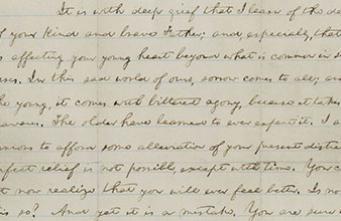 It is with deep grief that I learn of the de
of your kind and brave Father; and, especially, that
is affecting your young heart beyond what is common in s
ses. In this sad world of ours, sorrow comes to all; an
he young, it comes with bitterest agony, because it takes
awares. The older have learned to ever expect it. I a
nxious to afford some alleviation of your present distre
rfect relief is not possible, except with time. You c
t now realize that you will ever feel better. Is no
is so? And yet it is a mistake. You are sure